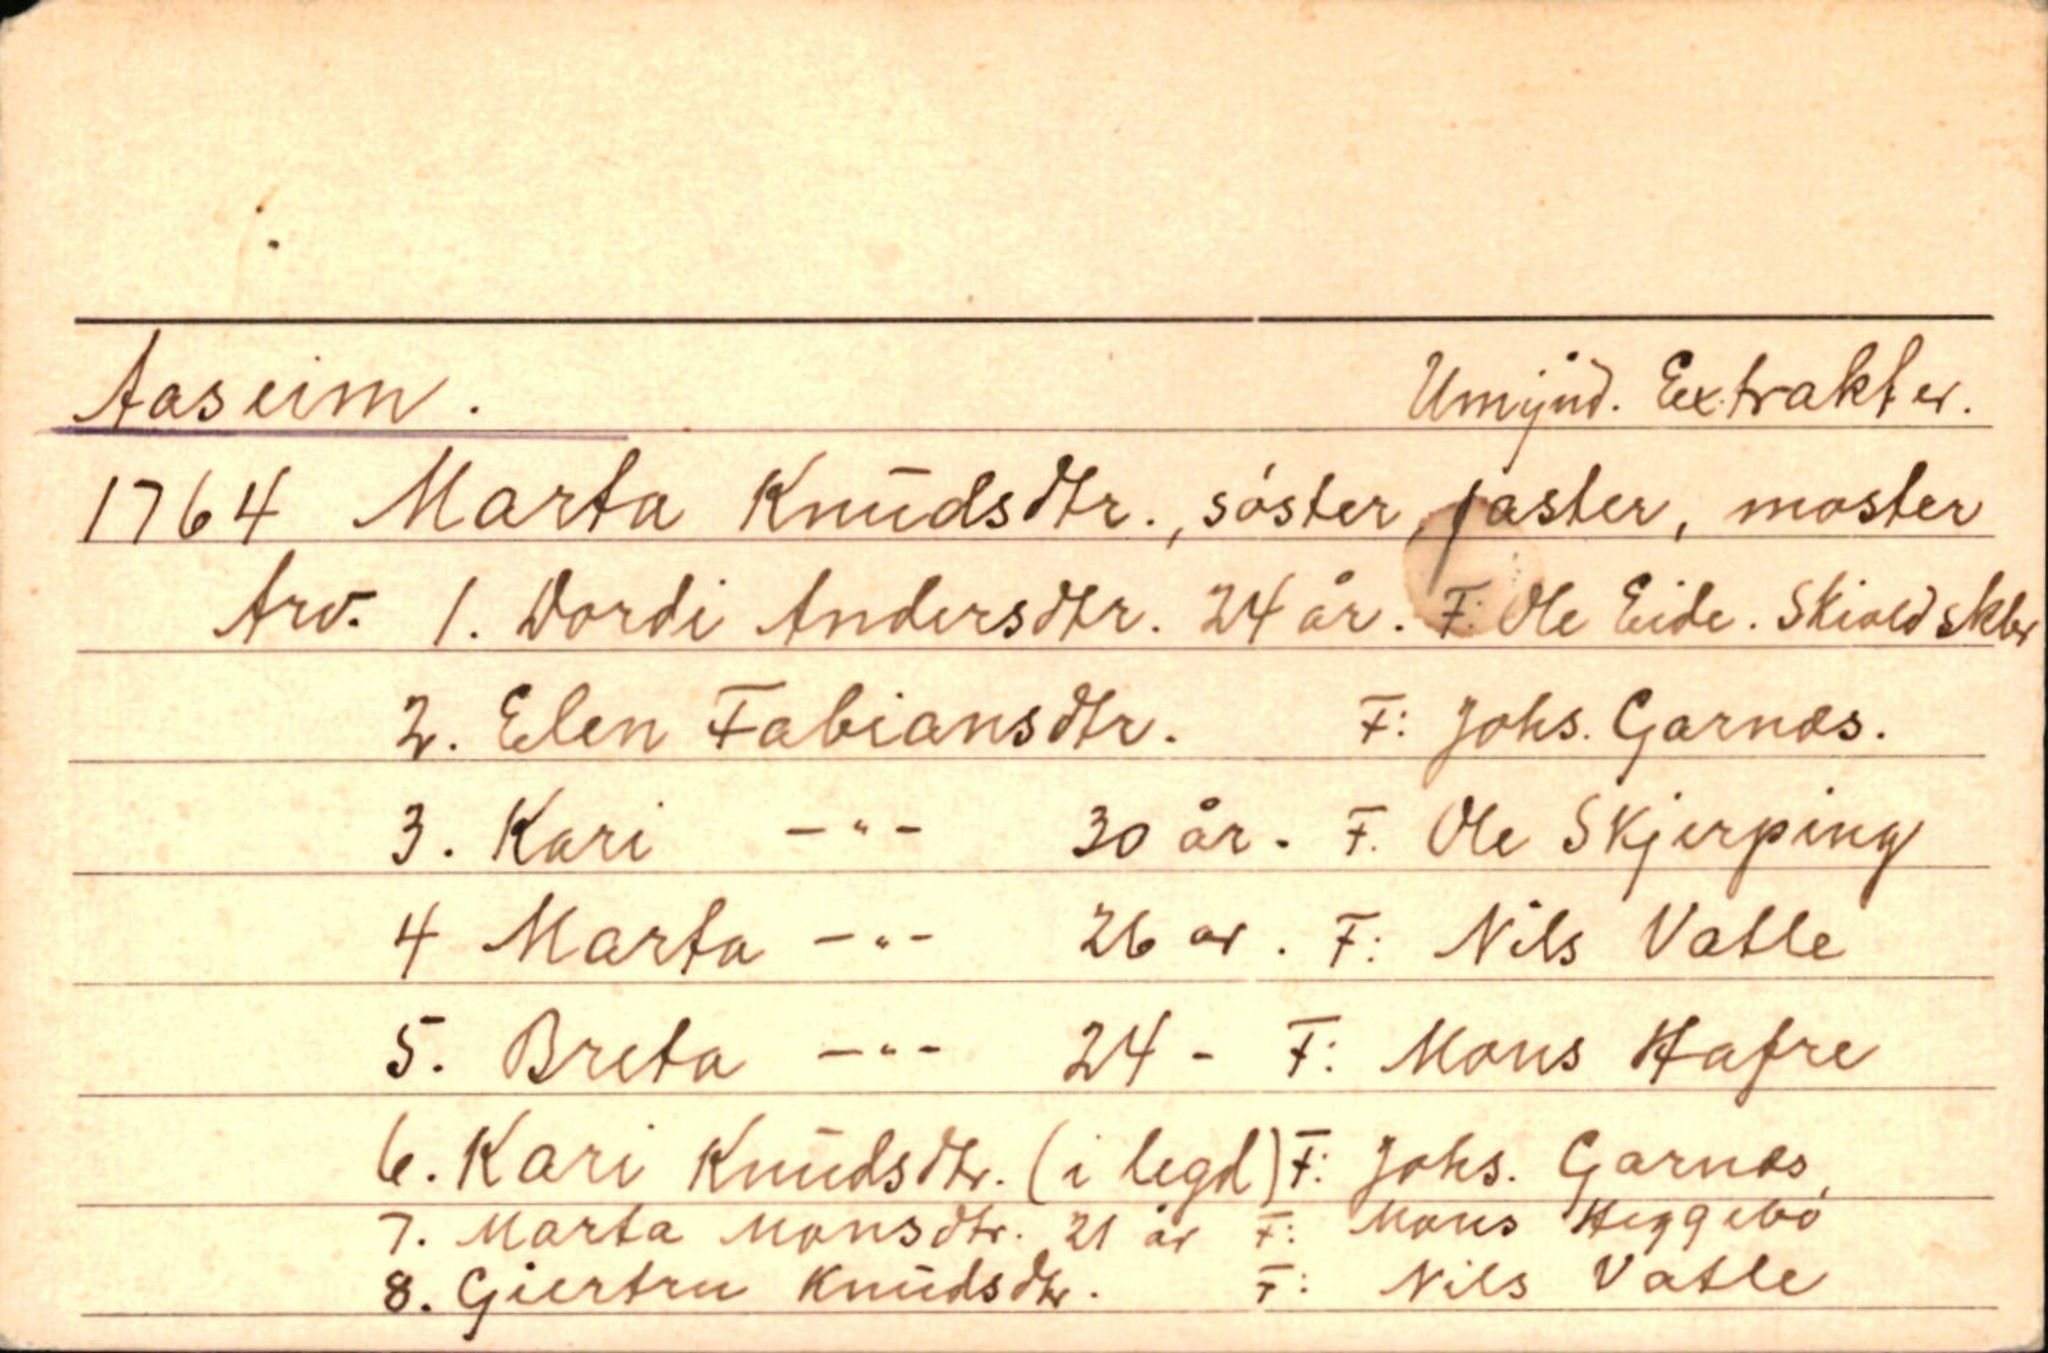 Aaseim. Umynd. Extrakter.
1764 Marta Knudsdtr., söster, faster, moster
Arv. 1. Dordi Andersdtr. 24 år. F: Ole Eide. Skioldskbr
2. Elen Fabiansdtr. F: Johs. Garnæs.
3. Kari -"- 30 år. F. Ole Skjerping
4 Marta -"- 26 år. F: Nils Vatle
5. Breta -"- 24 - F: Mons Hafre
6. Kari Knudsdtr. (i legd) F: Johs. Garnæs,
7. Marta Monsdtr. 21 år F: Mons Heggebö
8. Giertru Knudsdtr. F: Nils Vatle